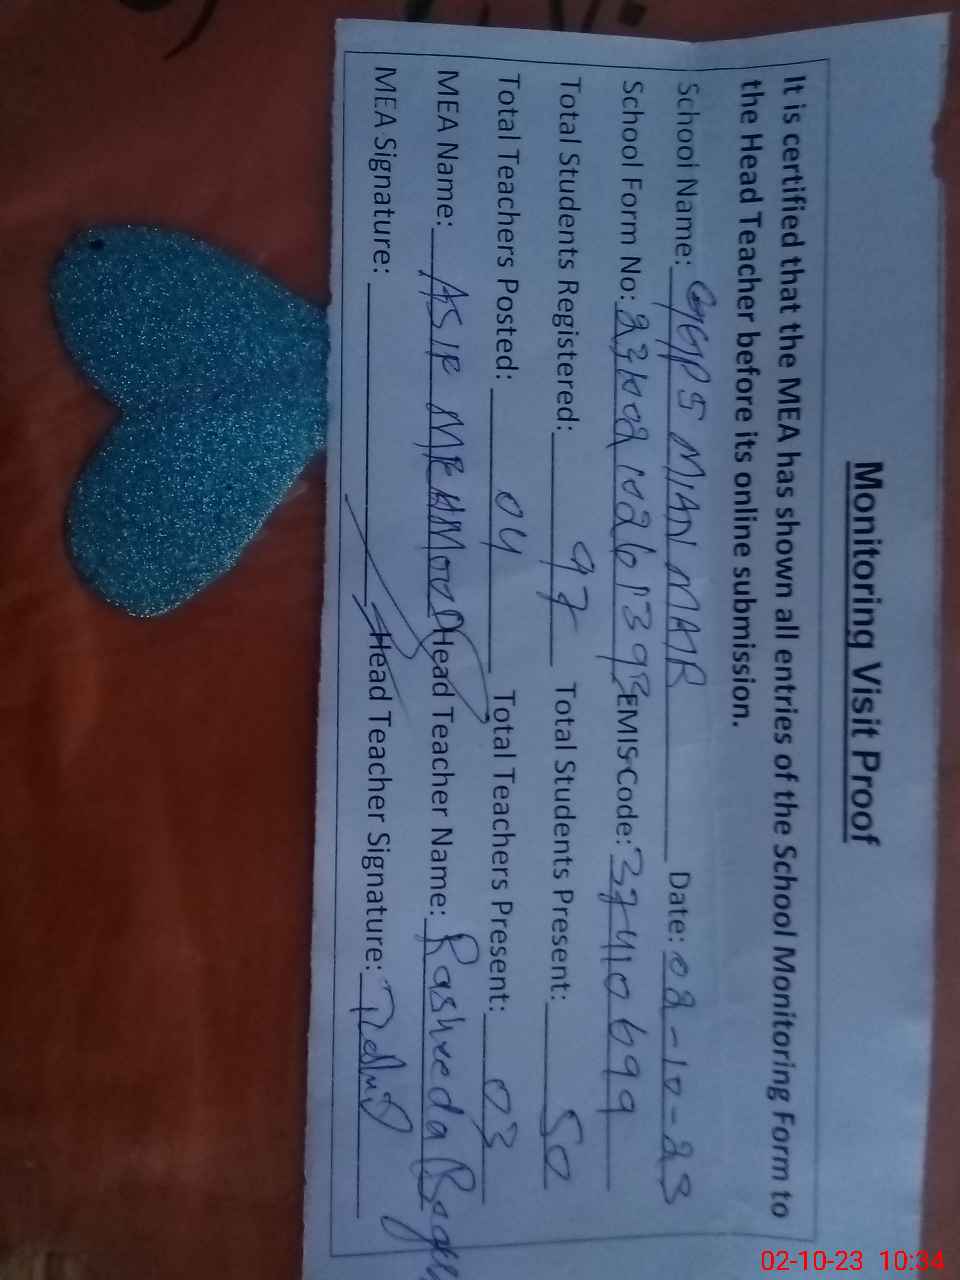 Monitoring Visit Proof
It is certified that the MEA has shown all entries of the School Monitoring Form to
the Head Teacher before its online submission.
School Name: GGPS MIAN MAR Date: 02-10-23
School Form No: EMIS Code: 37410699
Total Students Registered: 97 Total Students Present: 50
Total Teachers Posted: 04 Total Teachers Present: 03
MEA Name: ASIF MEHMOOD Head Teacher Name: Rasheeda
MEA Signature: Head Teacher Signature:
02-10-23 10:34